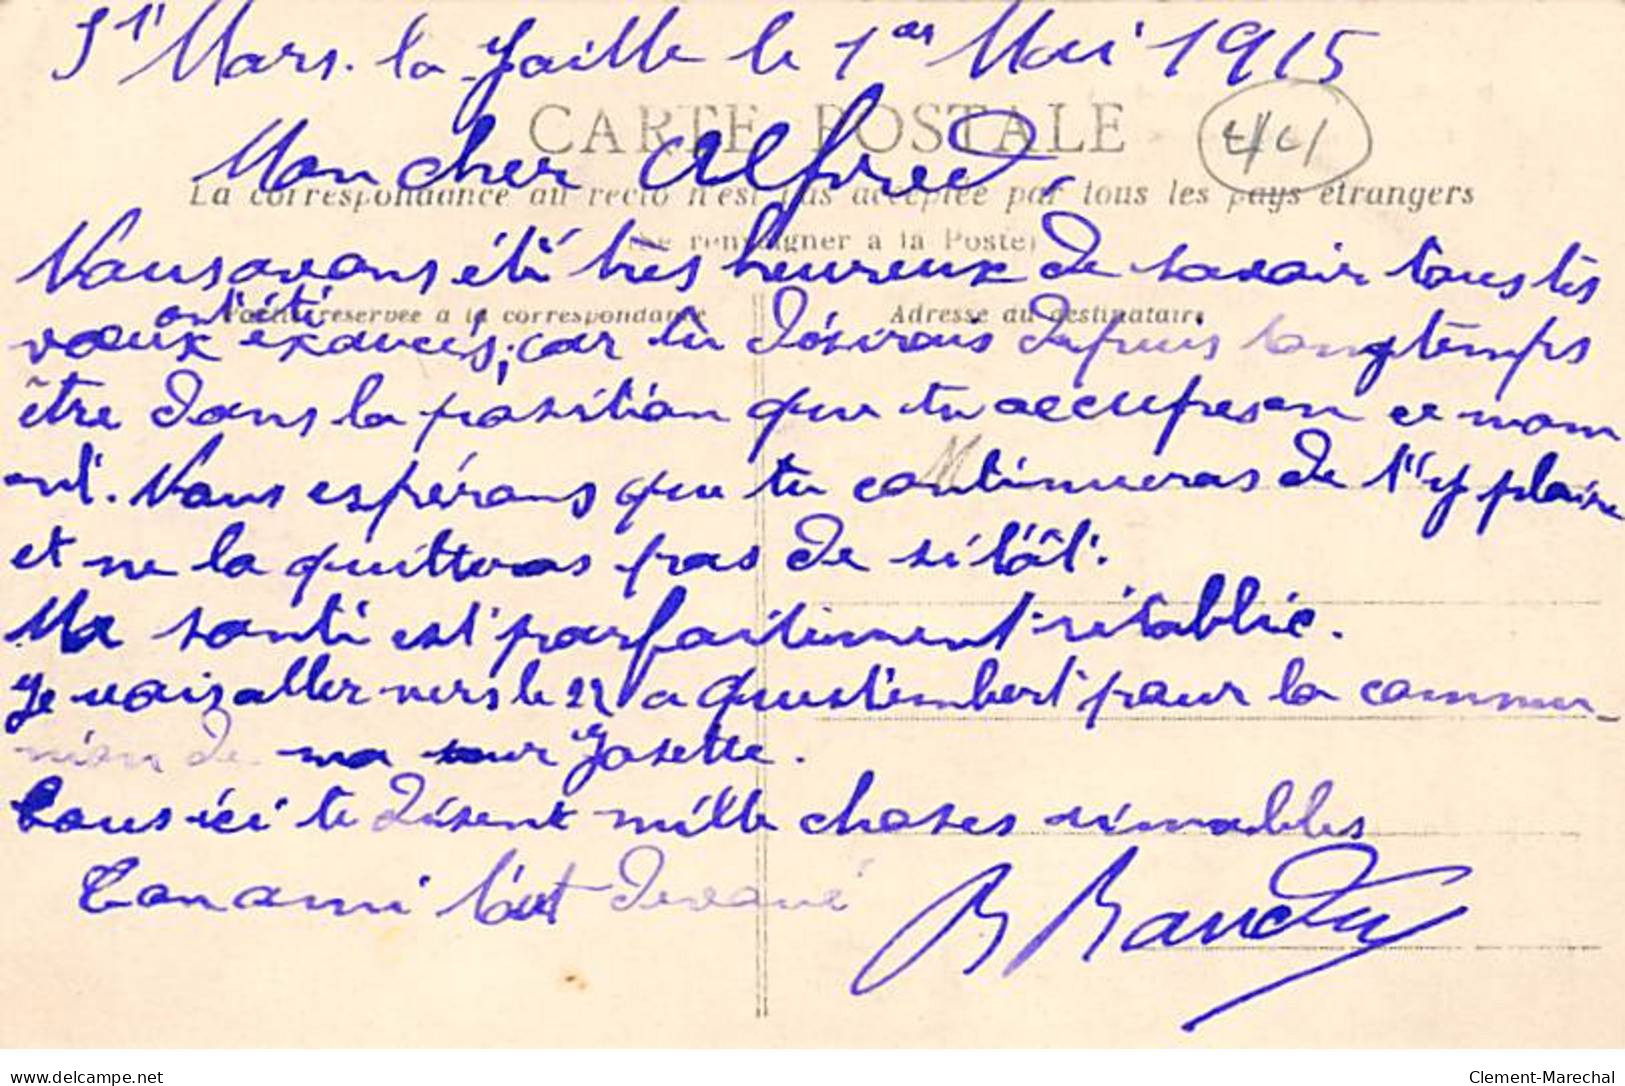 St Mars. la Jaille le 1er Mai 1915
CARTE POSTALE
44
Mon cher Alfred,
La correspondance au recto n'est pas acceptée par tous les pays étrangers
(Se renseigner à la Poste)
Nous avons été très heureux de savoir tous tes
Partie réservée à la correspondance
Adresse du destinataire
ont été
vœux exaucés, car tu désirais depuis longtemps
être dans la position que tu occupes en ce mom
ent. Nous espérons que tu continueras de t'y plaire
et ne la quitteras pas de sitôt.
Ma santé est parfaitement rétablie.
Je vais aller vers le 22 a Questembert pour la commu-
nion de ma sœur Josette.
Tous ici te disent mille choses aimables
Ton ami tout dévoué
Baudry
delcampe.net
Clement-Marechal